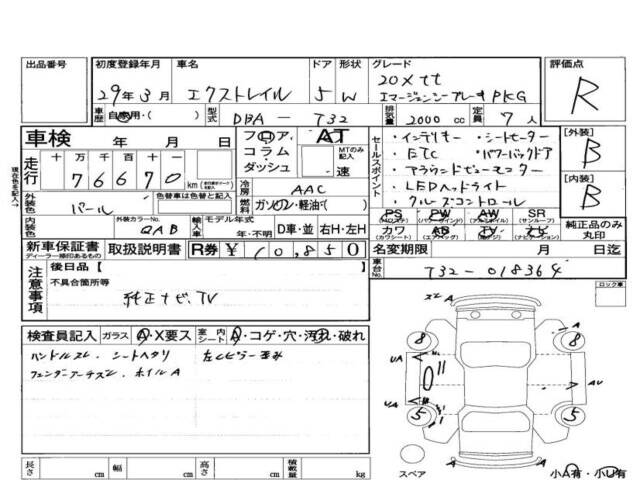 出品番号
初度登録年月
29年3月
車名
エクストレイル
ドア
5
形状
W
グレード
20Xtt
エマージェンシーブレーキPKG
評価点
R
車歴
自家用・( )
型式
DBA－T32
排気量
2000 cc
定員
7 人
車検 年 月 日
フロア・コラム・ダッシュ
AT
MTのみ記入
速
セールスポイント
・インテリキー ・シートヒーター
・ETC ・パワーバックドア
・アラウンドビューモニター
・LEDヘッドライト
・クルーズコントロール
【外装】
B
【内装】
B
現在色を記入→
走行
十 万 千 百 十 一
76670
km
冷房
AAC
外装色
パール
色替車は色替前色
燃料
ガソリン・軽油・( )
内装色
外装カラーNo.
QAB
輸入車
モデル年式
年・不明
D車・並
右H・左H
PS
(パワーステアリング)
PW
(パワーウインドウ)
AW
(アルミホイル)
SR
(サンルーフ)
カワ
(カワシート)
AB
(エアバッグ)
ナビ
TV
純正品のみ丸印
新車保証書
ディーラー捺印あるもの
取扱説明書
R券 ¥ 10,850
名変期限 月 日迄
注意事項
後日品【 】
不具合箇所等
純正ナビ、TV
車台No.
T32-018364
ロック車
検査員記入
ガラス
A・X要ス
室内シート
A・コゲ・穴・汚れ・破れ
ハンドルスレ シートヘタリ
左Cピラー歪み
フェンダーアーチズレ ホイルA
スレ A
A
8
8
UA
UA
AU
5
5
A
A
スペア
小A有・小U有
長さ cm
幅 cm
高さ cm
積載量 kg